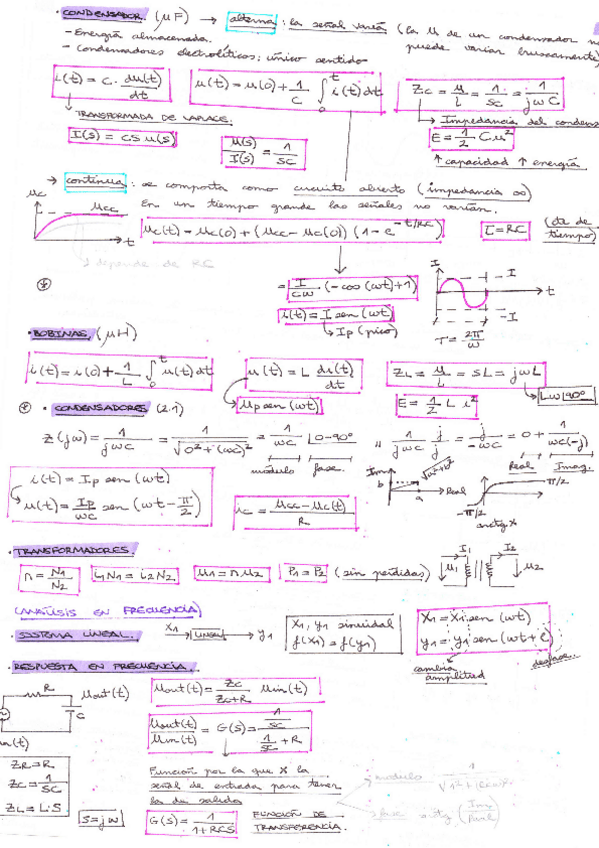 · CONDENSADOR. (μF) → alterna: la señal varía (la u de un condensador no
puede variar bruscamente)
- Energía almacenada.
- Condensadores electrolíticos: único sentido
i(t) = C · du(t)/dt
u(t) = u(0) + 1/C ∫₀ᵗ i(t) dt
Zc = u/i = 1/sC = 1/jωC
→ TRANSFORMADA DE LAPLACE:
→ Impedancia del condens
I(s) = CS u(s)
u(s)/I(s) = 1/SC
E = 1/2 C u²
↑ capacidad ↑ energía
→ continua: se comporta como circuito abierto (impedancia ∞)
En un tiempo grande las señales no varían.
uc
ucc
t
depende de RC
uc(t) = uc(0) + (ucc - uc(0)) (1 - e^(-t/RC))
τ = RC (cta de tiempo)
= I/Cω · (-cos(ωt) + 1)
i(t) = I sen(ωt)
→ Ip (pico)
I
I
-I
t
T = 2π/ω
· BOBINAS (μH)
i(t) = i(0) + 1/L ∫₀ᵗ u(t) dt
u(t) = L di(t)/dt
ZL = u/i = sL = jωL
→ up sen(ωt)
E = 1/2 L i²
Lω|90°
* · CONDENSADORES (2.1)
Z(jω) = 1/jωC = 1/√(0² + (ωC)²) = 1/ωC |0-90° ,, 1/jωC · j/j = j/-ωC = 0 + 1/ωC(-j)
módulo fase. Real Imag.
i(t) = Ip sen(ωt)
u(t) = Ip/ωC sen(ωt - π/2)
ic = (ucc - uc(t))/R
Im
b
a
Real
√(a²+b²)
π/2
-π/2
arctg x
· TRANSFORMADORES.
n = N1/N2
i1N1 = i2N2
u1 = n u2
P1 = P2 (sin pérdidas)
I1
I2
u1
u2
(ANÁLISIS EN FRECUENCIA)
· SISTEMA LINEAL. x1 → LINEAL → y1
x1, y1 sinuidal
f(x1) = f(y1)
X1 = X1 sen(ωt)
y1 = y1 sen(ωt +
cambia amplitud
desfase.
· RESPUESTA EN FRECUENCIA.
R
uout(t)
C
in(t)
uout(t) = Zc/(Zc+R) uin(t)
uout(t)/uin(t) = G(s) = (1/SC)/(1/SC + R)
ZR = R
Zc = 1/SC
ZL = L·S
Función por la que X la
señal de entrada para tener
la de salida
módulo 1/√(1² + (RCω)²)
fase arctg (Imag/Real)
S = jω
G(s) = 1/(1+RCS)
FUNCIÓN DE TRANSFERENCIA.